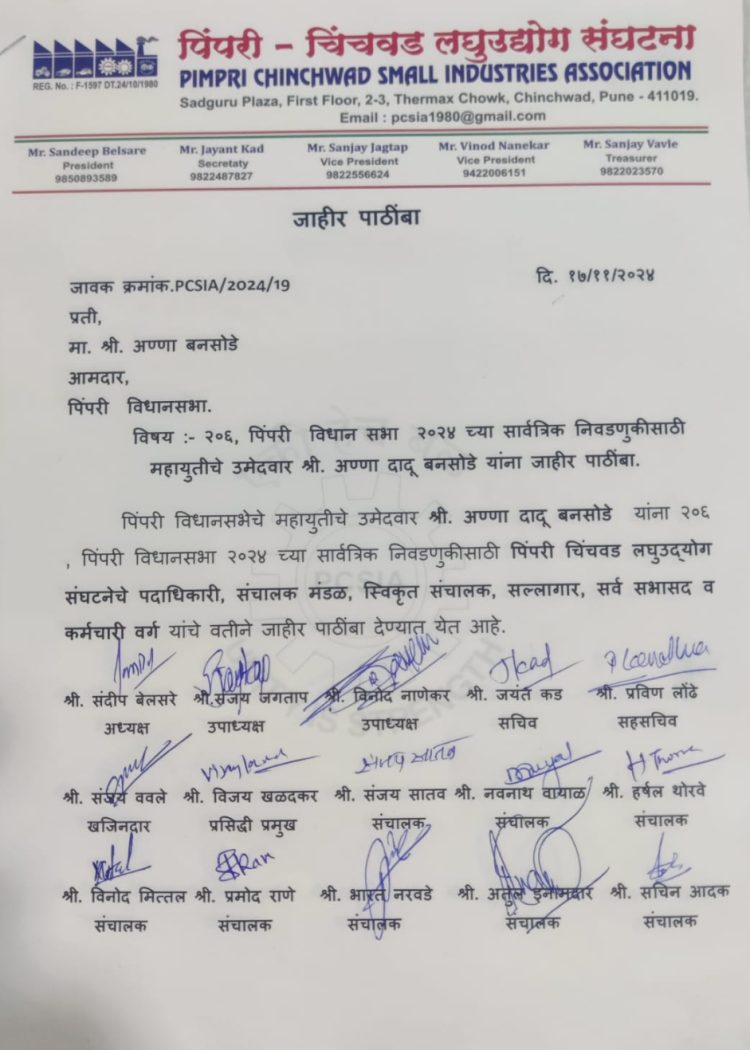 पिंपरी - चिंचवड लघुउद्योग संघटना
REG. No. : F-1597 DT.24/10/1980
PIMPRI CHINCHWAD SMALL INDUSTRIES ASSOCIATION
Sadguru Plaza, First Floor, 2-3, Thermax Chowk, Chinchwad, Pune - 411019.
Email : pcsia1980@gmail.com
Mr. Sandeep Belsare Mr. Jayant Kad Mr. Sanjay Jagtap Mr. Vinod Nanekar Mr. Sanjay Vavle
President Secretaty Vice President Vice President Treasurer
9850893589 9822487827 9822556624 9422006151 9822023570
जाहीर पाठींबा
जावक क्रमांक.PCSIA/2024/19 दि. १७/११/२०२४
प्रती,
मा. श्री. अण्णा बनसोडे
आमदार,
पिंपरी विधानसभा.
विषय :- २०६, पिंपरी विधान सभा २०२४ च्या सार्वत्रिक निवडणुकीसाठी
महायुतीचे उमेदवार श्री. अण्णा दादू बनसोडे यांना जाहीर पाठींबा.
पिंपरी विधानसभेचे महायुतीचे उमेदवार श्री. अण्णा दादू बनसोडे यांना २०६
, पिंपरी विधानसभा २०२४ च्या सार्वत्रिक निवडणुकीसाठी पिंपरी चिंचवड लघुउद्‌योग
संघटनेचे पदाधिकारी, संचालक मंडळ, स्विकृत संचालक, सल्लागार, सर्व सभासद व
कर्मचारी वर्ग यांचे वतीने जाहीर पाठींबा देण्यात येत आहे.
PCSIA
श्री. संदीप बेलसरे श्री. संजय जगताप श्री. विनोद नाणेकर श्री. जयंत कड श्री. प्रविण लोंढे
अध्यक्ष उपाध्यक्ष उपाध्यक्ष सचिव सहसचिव
संजय सातव
श्री. संजय ववले श्री. विजय खळदकर श्री. संजय सातव श्री. नवनाथ वायाळ श्री. हर्षल थोरवे
खजिनदार प्रसिद्धी प्रमुख संचालक संचालक संचालक
श्री. विनोद मित्तल श्री. प्रमोद राणे श्री. भारत नरवडे श्री. अतुल इनामदार श्री. सचिन आदक
संचालक संचालक संचालक संचालक संचालक